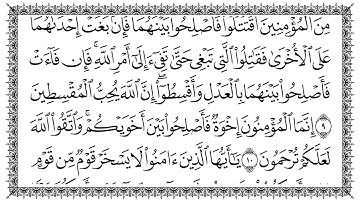 مِنَ ٱلْمُؤْمِنِينَ ٱقْتَتَلُوا۟ فَأَصْلِحُوا۟ بَيْنَهُمَا فَإِنۢ بَغَتْ إِحْدَىٰهُمَا
عَلَى ٱلْأُخْرَىٰ فَقَـٰتِلُوا۟ ٱلَّتِى تَبْغِى حَتَّىٰ تَفِىٓءَ إِلَىٰٓ أَمْرِ ٱللَّهِ ۚ فَإِن فَآءَتْ
فَأَصْلِحُوا۟ بَيْنَهُمَا بِٱلْعَدْلِ وَأَقْسِطُوٓا۟ ۖ إِنَّ ٱللَّهَ يُحِبُّ ٱلْمُقْسِطِينَ
٩ إِنَّمَا ٱلْمُؤْمِنُونَ إِخْوَةٌ فَأَصْلِحُوا۟ بَيْنَ أَخَوَيْكُمْ ۚ وَٱتَّقُوا۟ ٱللَّهَ
لَعَلَّكُمْ تُرْحَمُونَ ١٠ يَـٰٓأَيُّهَا ٱلَّذِينَ ءَامَنُوا۟ لَا يَسْخَرْ قَوْمٌ مِّن قَوْمٍ